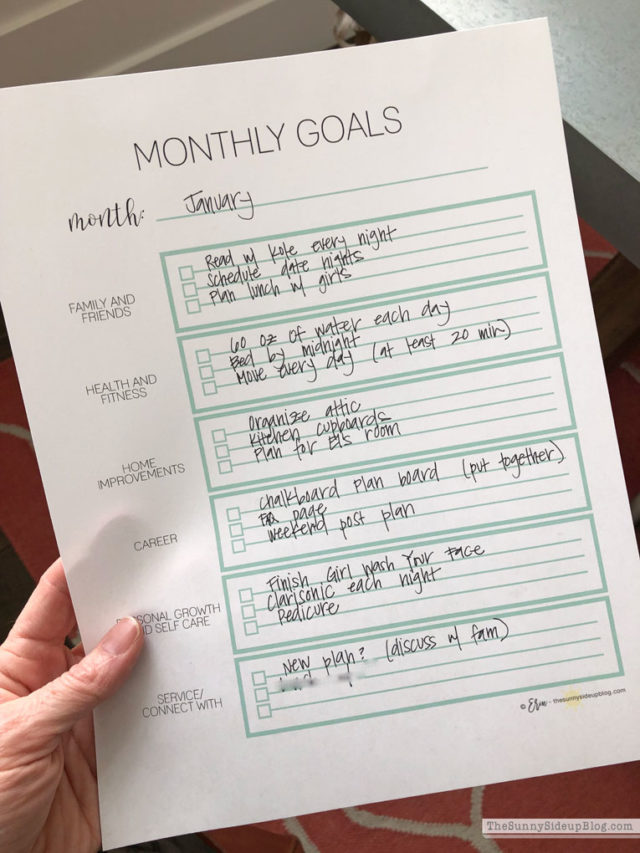 MONTHLY GOALS
month: January
FAMILY AND FRIENDS
Read w/ Kole every night
Schedule date nights
Plan lunch w/ girls
HEALTH AND FITNESS
60 oz of water each day
Bed by midnight
Move every day (at least 20 min)
HOME IMPROVEMENTS
Organize attic
Kitchen cupboards
Plan for El's room
CAREER
Chalkboard plan board (put together)
page
Weekend post plan
PERSONAL GROWTH AND SELF CARE
Finish Girl Wash Your Face
Clarisonic each night
Pedicure
SERVICE/ CONNECT WITH
New plan? (discuss w/ fam)
© Erin - thesunnysideupblog.com
TheSunnySideUpBlog.com